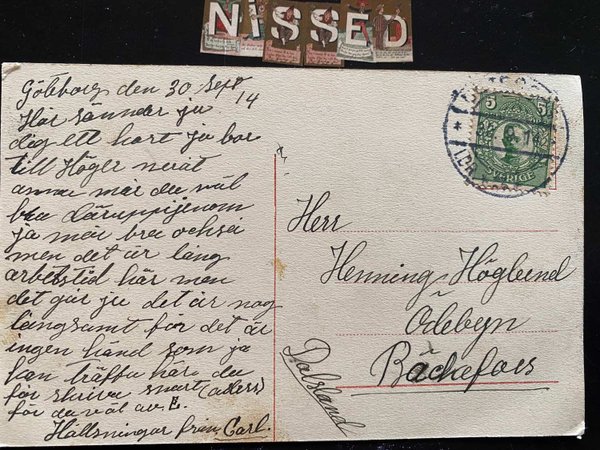 NISSED
Göteborg den 30 Sept
/14
Här sänder ja
dig ett kort ja bor
till Höger
annu mår du väl
bra däruppi
ja mår bra också
men det är lång
arbetstid här men
det går ju det är nog
långsamt för det är
ingen händ som ja
kan träffa här du
får skriva snart (adress)
för du väl av E.
Hällsningar från Carl.
5 5
SVERIGE
Herr
Henning Höglund
Ödebyn
Bäckefors
Dalsland